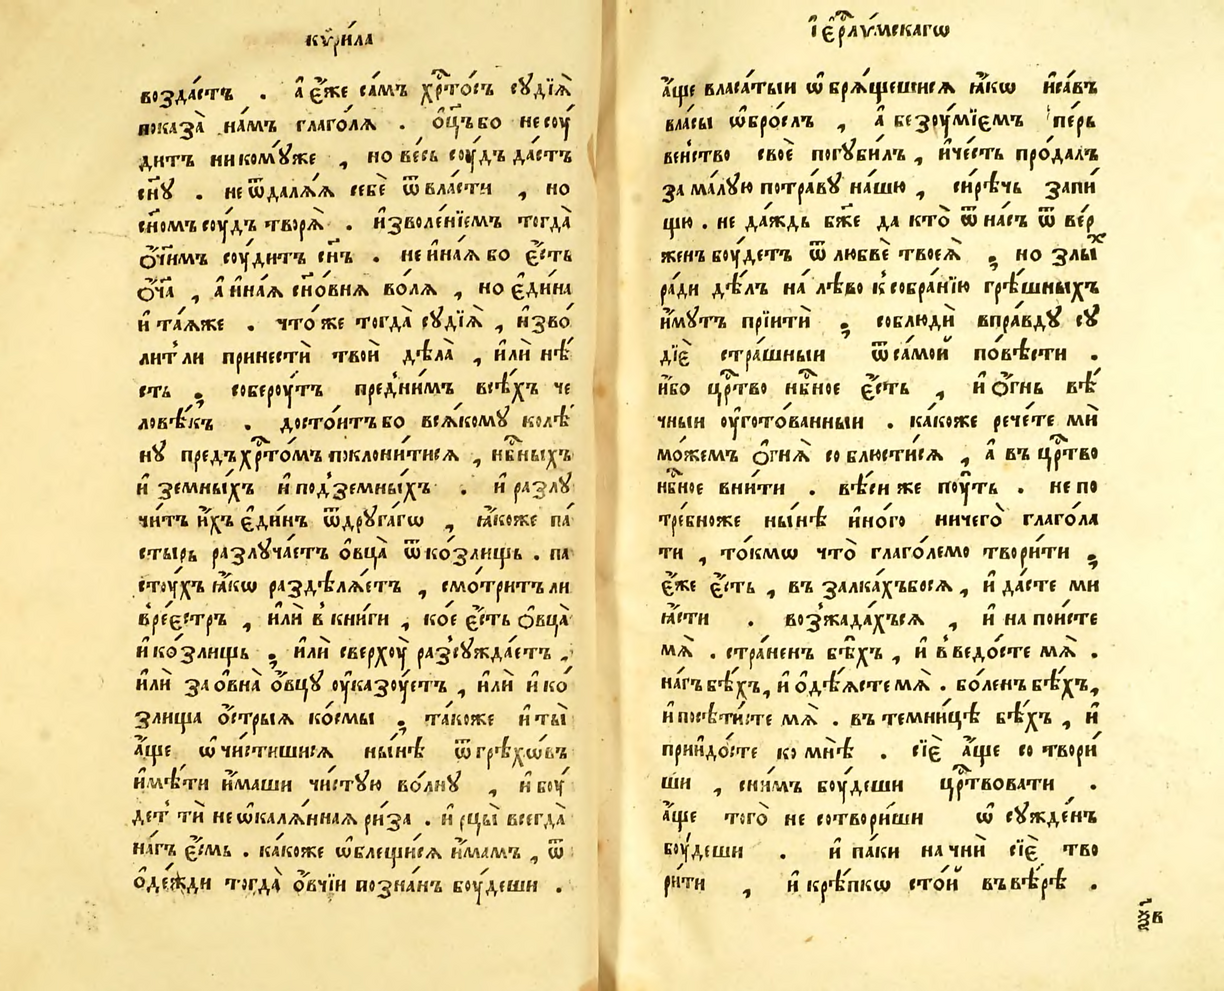 кѷри́ла
возда́стъ . а҆ є҆́же са́мъ хрⷭ҇то́съ сꙋдїѧ̀
показа̀ на́мъ глаго́лѧ . ѻ҆ц҃ъбо несоу́
дитъ никомꙋ́же , но ве́сь соу́дъ да́стъ
сн҃ꙋ . неѿдалѧ́ѧ себѐ ѿвла́сти , но
сн҃омъсоу́дъ творѧ̀ . и҆зволе́нїемъ тогда̀
ѻ҆́ч҃имъ соу́дитъ сн҃ъ . неи҆на́ѧ бо є҆́сть
ѻ҆́ч҃а , а҆и҆на́ѧ сн҃о́внѧ во́лѧ , но є҆ди́на
и҆ та́ѧже . что́же тогда̀ сꙋдїѧ̀ , и҆зво́
литʼли принестѝ твоѝ дѣ́ла , и҆лѝ нѣ́
сть ; собероу́тъ пред̾ни́мъ всѣ́хъ че
ловѣ́къ . досто́итъбо всѧ́комꙋ колѣ́
нꙋ предъхрⷭ҇то́мъ поклони́тисѧ , нб҃ныхъ
и҆ земны́хъ и҆ под̾зе́мны́хъ . и҆ разлꙋ
чи́тъ и҆̀хъ є҆ди́нъ ѿдрꙋга́гѡ , ꙗ҆́коже па́
стырь разлꙋча́етъ ѻ҆вца̀ ѿко́злищъ . па
стоу́хъ ꙗ҆́кѡ раздѣлѧ́етъ , смо́тритъли
в̾рее́стръ , и҆лѝ в̾ кни́ги , ко́е є҆́сть ѻ҆вца̀
и҆ко́злищь ; и҆лѝ сверхоу̀ раз̾сꙋжда́етъ ,
и҆лѝ заѻ҆вна̀ ѻ҆́вцꙋ оу҆казоу́етъ , и҆лѝ и҆ ко́
злища ѻ҆́стрыѧ ко́смы ; та́коже и҆ ты̀
а҆́ще ѡ҆чи́стишисѧ ны́нѣ ѿгрѣхѡ́въ
и҆мѣ́ти и҆́маши чи́стꙋю во́лнꙋ , и҆ боу́
детʼ тѝ неѡ҆калѧ́ннаѧ ри́за . и҆ рцы̀ всегда̀
на́гъ є҆́смь . ка́коже ѡ҆блещи́сѧ и҆́мамъ , ѿ
ѻ҆де́жди тогда̀ ѻ҆́вчїи позна́нъ боу́деши .
і҆єрⷭ҇лѵ́мскагѡ
а҆́ще власа́тыи ѡ҆брѧ́щешисѧ ꙗ҆́кѡ и҆са́въ
вла́сы ѡ҆бро́слъ , а҆ безоу́мїемъ пе́рь
ве́нство своѐ погꙋби́лъ , и҆че́сть про́далъ
зама́лꙋю потра́вꙋ на́шю , си́рѣчь запи́
щю . не да́ждь бж҃е да кто̀ ѿна́съ ѿ ве́р
женъ боу́детъ ѿ любвѐ твоеѧ̀ ; но злы́ⷯ
ра́ди дѣ́лъ на лѣ́во к̾собра́нїю грѣ́шныхъ
и҆́мꙋтъ прїитѝ ; соблюдѝ впра́вдꙋ сꙋ
дїє̀ стра́шныи ѿса́мой по́вѣсти .
и҆́бо црⷭ҇тво нбⷭ҇ное є҆́сть , и҆ ѻ҆́гнь вѣ́
чныи оу҆гото́ванныи . ка́коже рече́те мѝ
мо́жемъ ѻ҆гнѧ̀ соблюсти́сѧ , а҆ въ црⷭ҇тво
нбⷭ҇ное вни́ти . вѣ́сиже поу́ть . не по
тре́бноже ны́нѣ и҆но́го ничего̀ глаго́ла
ти , то́кмѡ что̀ глаго́лемо твори́ти ;
є҆́же є҆́сть , въ залка́хъбосѧ , и҆ да́сте ми
ꙗ҆́сти . воз̾жада́хъсѧ , и҆ на пои́сте
мѧ̀ . стра́ненъ бѣ́хъ , и҆ в̾ ведо́сте мѧ̀ .
на́гъ бѣ́хъ, и҆ ѻ҆дѣ́ѧсте мѧ̀ . бо́ленъ бѣ́хъ,
и҆ посѣти́сте мѧ̀ . въ темни́цѣ бѣ́хъ , и҆
прии҆до́сте ко мнѣ̀ . сїѐ а҆́ще со твори́
ши , сни́мъ боу́деши црⷭ҇твовати .
а҆́ще того̀ не сотвори́ши ѡ҆ сꙋжде́нъ
боу́деши . и҆ па́ки начнѝ сїѐ тво
ри́ти , и҆ крѣ́пкѡ сто́й въвѣ́рѣ .
ѯ҃в